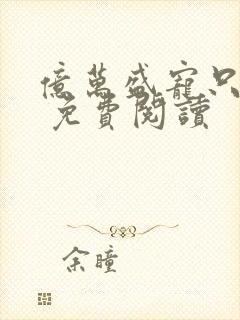 億萬盛寵只
免費閱讀
余瞳